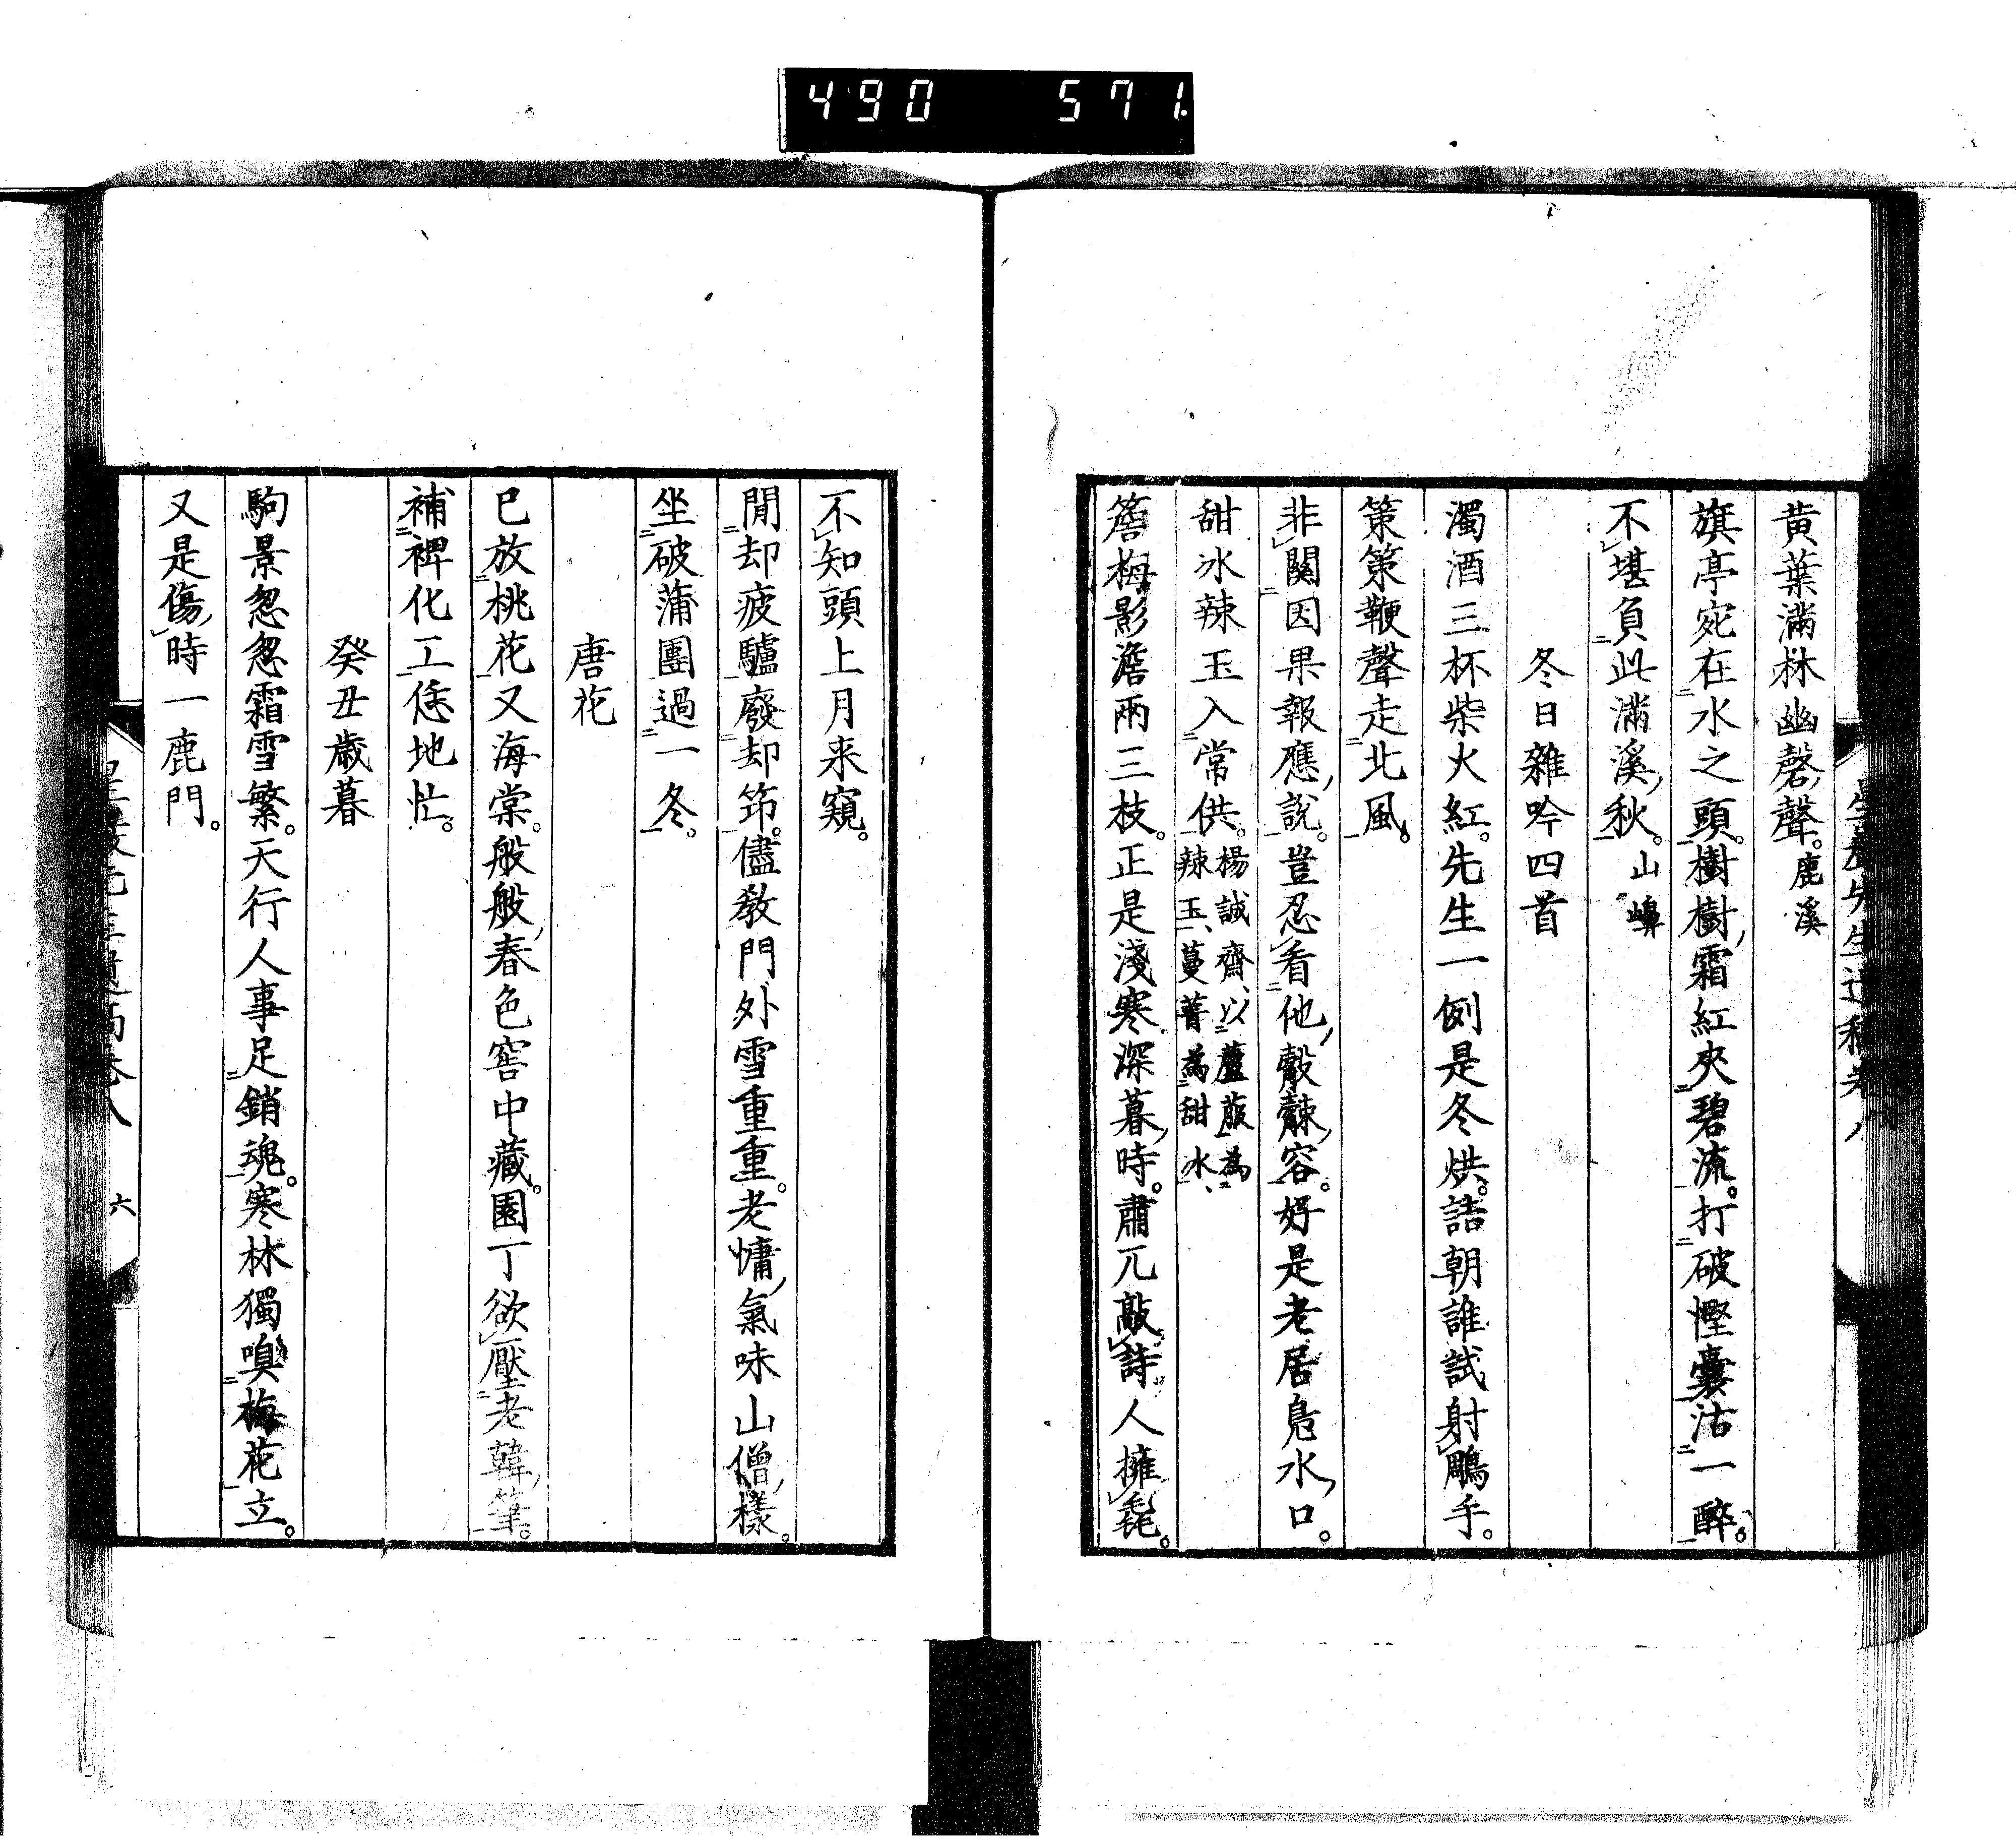 490 571
黄葉滿林幽磬聲。鹿溪
旗亭宛在水之頭。樹樹霜紅夾碧流。打破慳囊沽一醉。
不堪負此滿溪秋。山嶰
冬日雜吟四首
濁酒三杯柴火紅。先生一例是冬烘。詰朝誰試射鵰手。
策策鞭聲走北風。
非關因果報應說。豈忍看他觳觫容。好是老居烏水口。
甜冰辣玉入常供。楊誠齋、以蘆菔為
辣玉、蔓菁為甜冰、
簷梅影澹兩三枝。正是淺寒深暮時。肅兀敲詩人擁毳。
不知頭上月来窺。
閒却疲驢廢却筇。儘教門外雪重重。老慵氣味山僧樣。
坐破蒲團過一冬。
唐花
已放桃花又海棠。般般春色窖中藏。園丁欲壓老韓筆。
補裨化工恁地忙。
癸丑歳暮
駒景怱怱霜雪繁。天行人事足銷魂。寒林獨嗅梅花立。
又是傷時一鹿門。
六